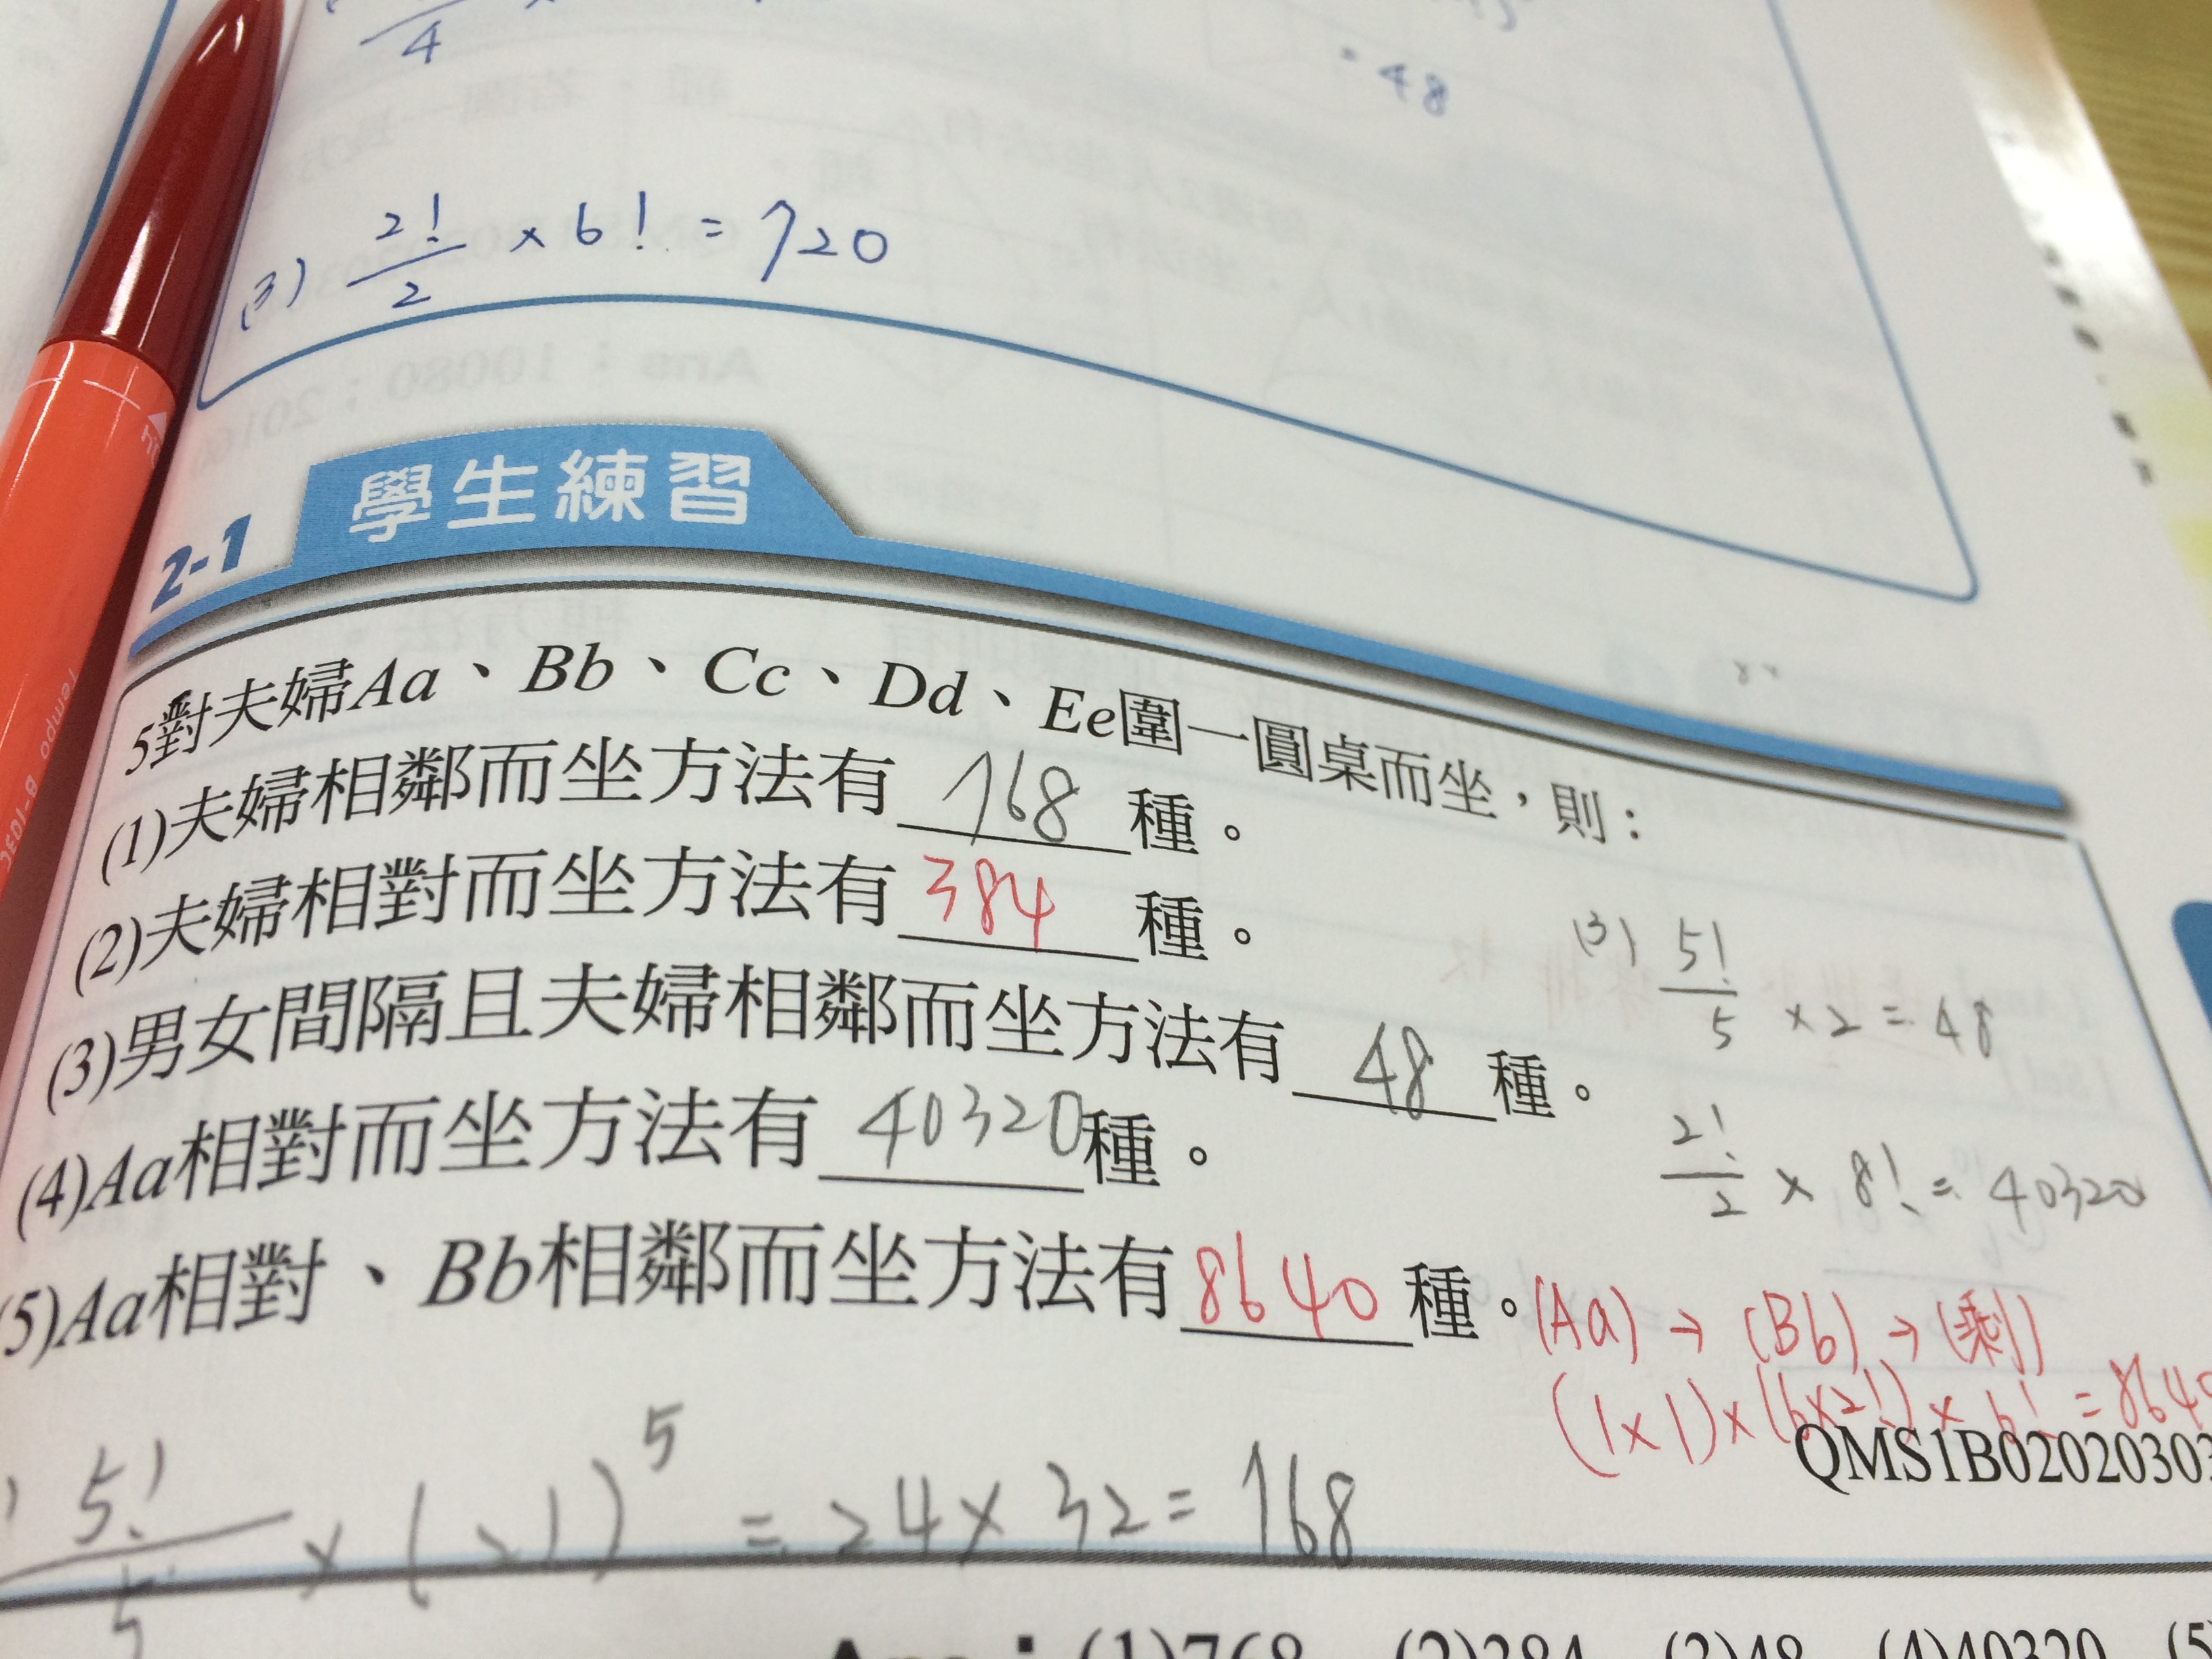 4
= 48
(3) 2!/2 × 6! = 720
2-1 學生練習
5對夫婦Aa、Bb、Cc、Dd、Ee圍一圓桌而坐，則：
(1)夫婦相鄰而坐方法有 768 種。
(2)夫婦相對而坐方法有 384 種。
(3)男女間隔且夫婦相鄰而坐方法有 48 種。
(3) 5!/5 × 2 = 48
(4)Aa相對而坐方法有 40320 種。
2!/2 × 8! = 40320
(5)Aa相對、Bb相鄰而坐方法有 8640 種。
(Aa) → (Bb) → (剩)
(1×1)×(6×2!)×6! = 8640
QMS1B0202030
5!/5 × (2!)^5 = 24 × 32 = 768
Ans：(1)768 (2)384 (3)48 (4)40320 (5)